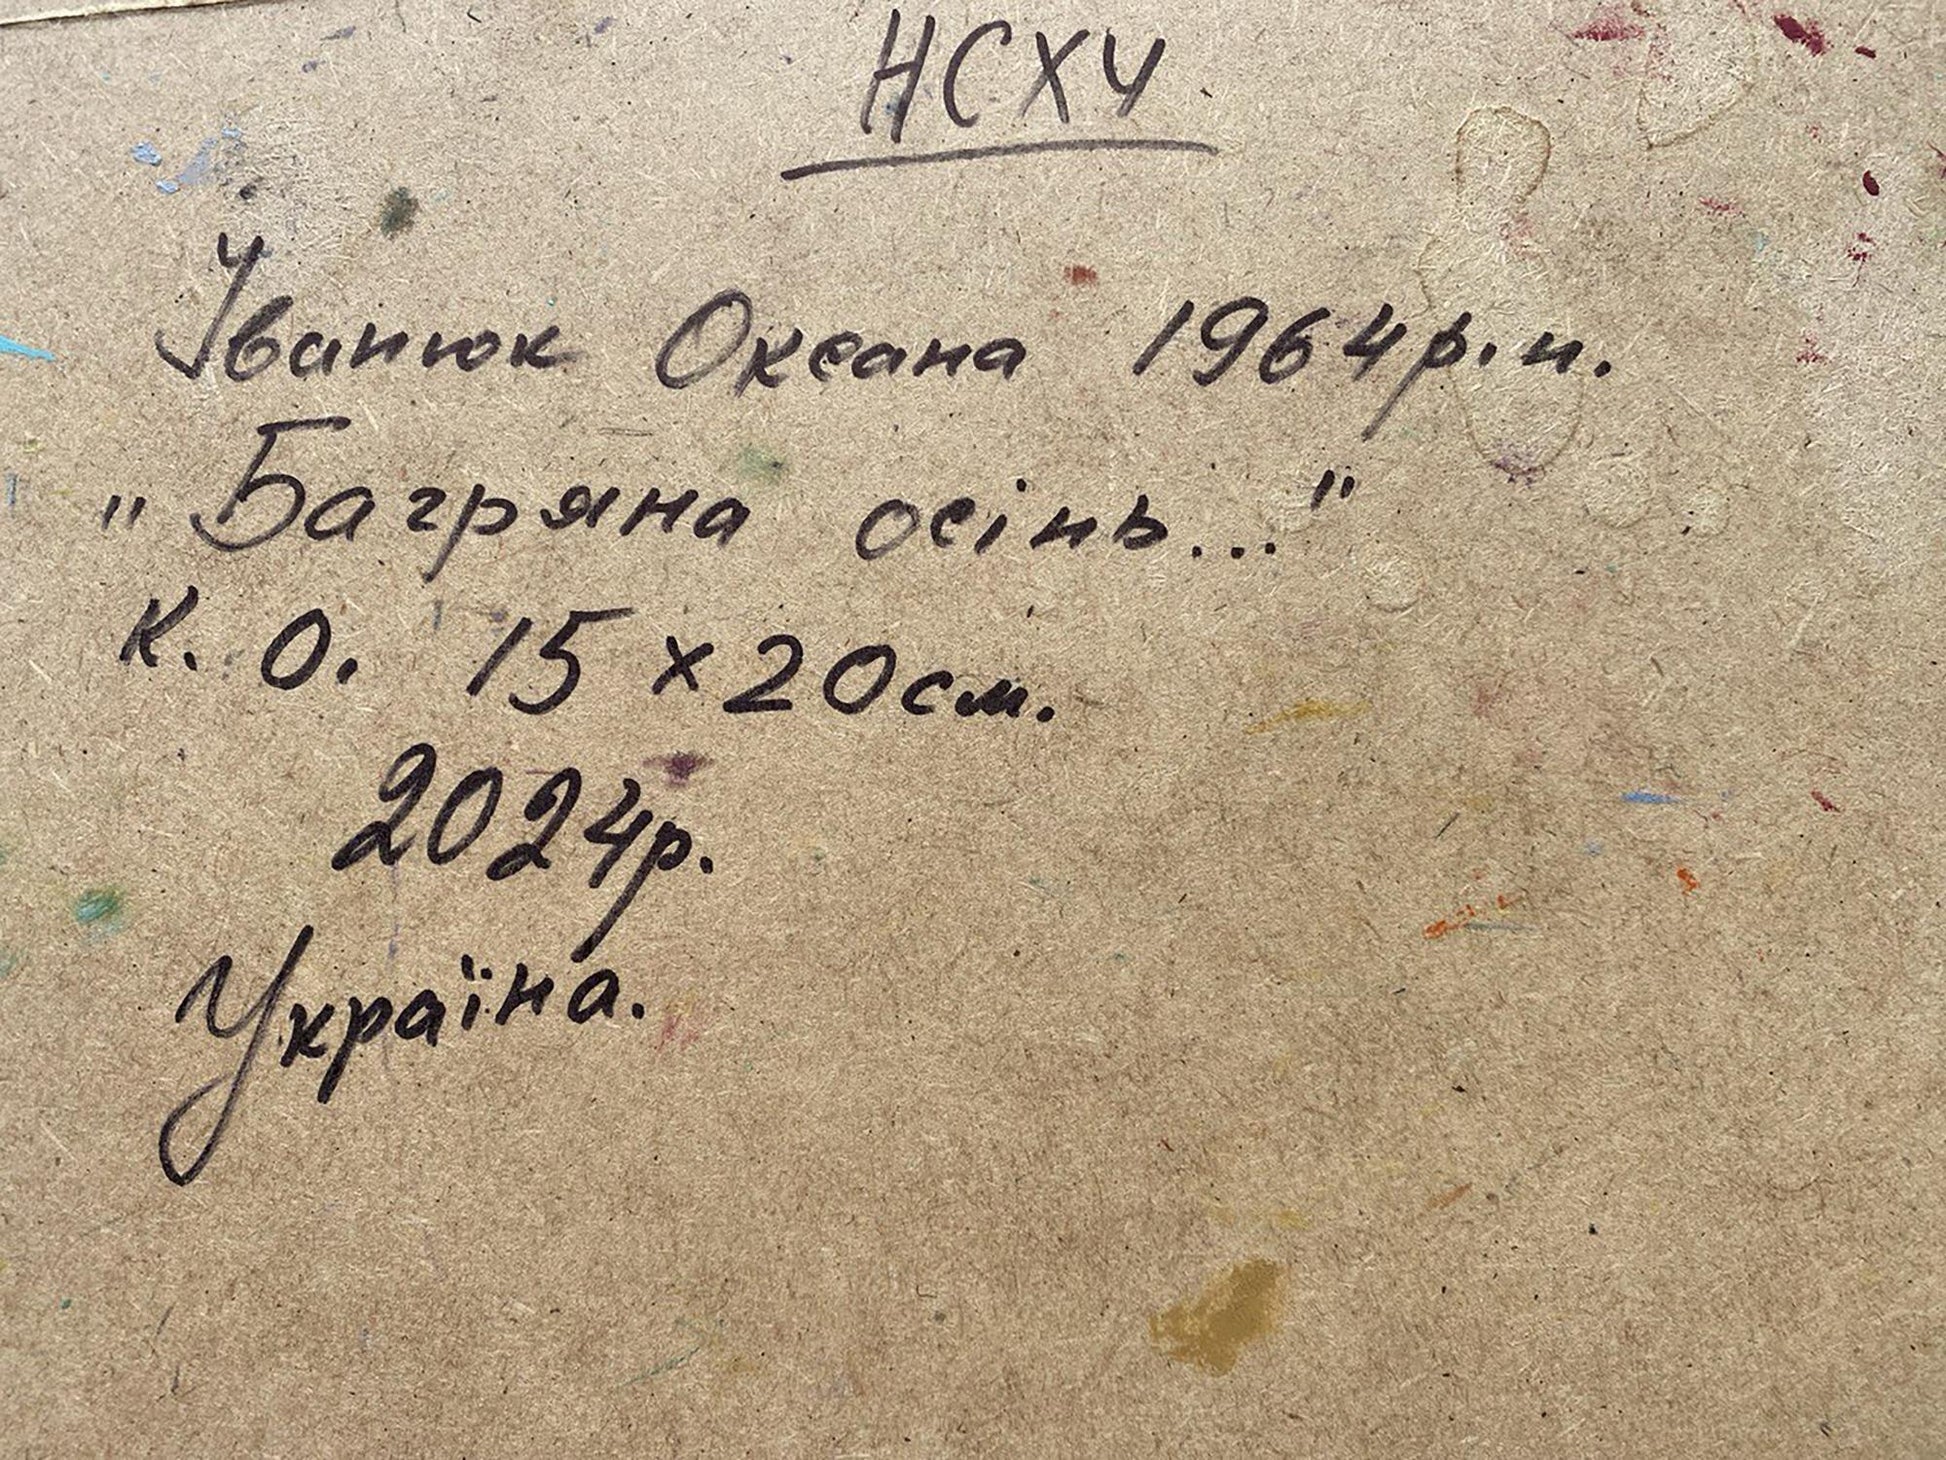 НСХУ
Іванюк Оксана 1964р.н.
"Багряна осінь..."
К. О. 15×20см.
2024р.
Україна.